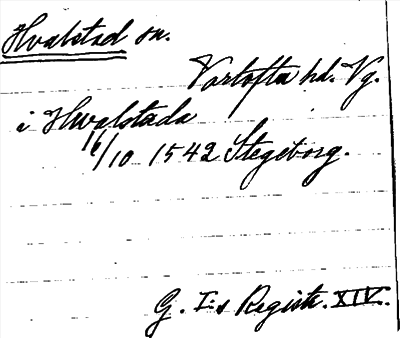 Hvalstad sn.
Vartofta hd. Vg.
i Hwalstada
16/10 1542 Stegeborg.
G. I:s Registr. XIV.